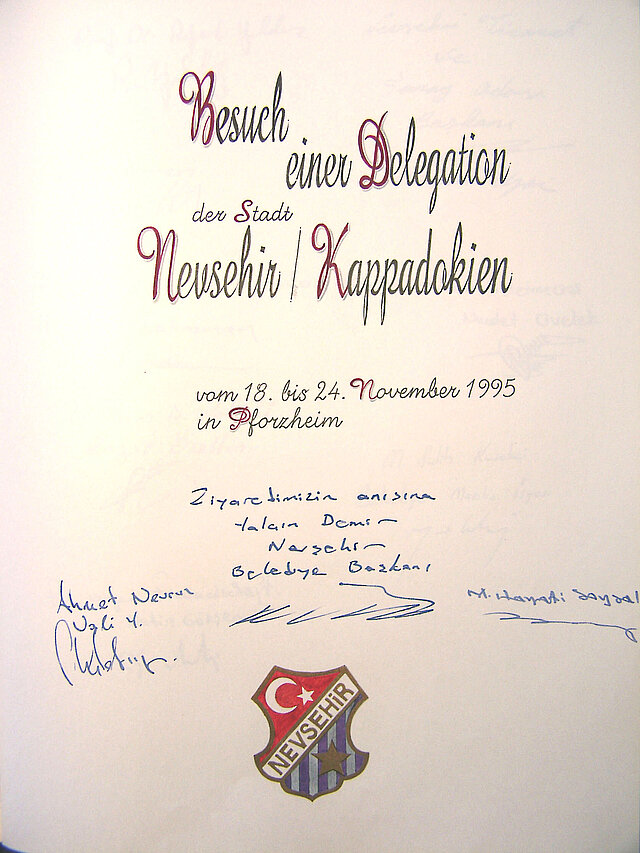 Besuch
einer Delegation
der Stadt
Nevsehir / Kappadokien
vom 18. bis 24. November 1995
in Pforzheim
Ziyaretimizin anısına
Yalçın Demir
Nevşehir
Belediye Başkanı
Ahmet Nevruz
Vali Y.
M. Hayati
NEVSEHiR